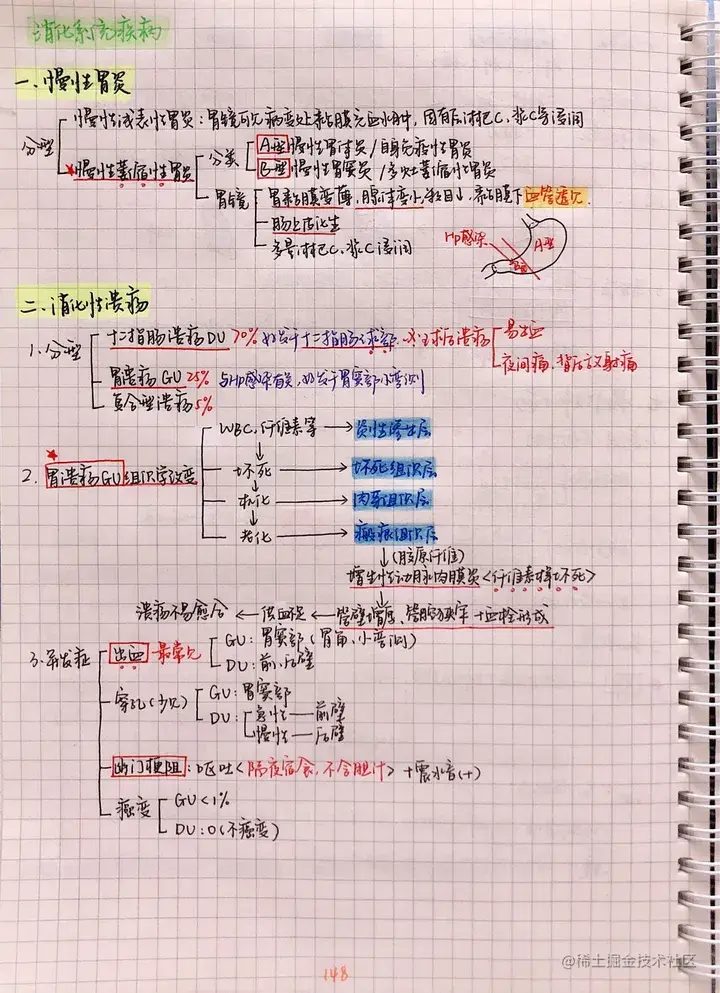 消化系统疾病
一、慢性胃炎
分型 慢性浅表性胃炎：胃镜可见病变处黏膜充血水肿，固有层淋巴C、浆C等浸润
慢性萎缩性胃炎 分类 A型慢性胃体炎/自身免疫性胃炎
B型慢性胃窦炎/多灶萎缩性胃炎
胃镜 胃黏膜变薄，腺体变小，数目↓，黏膜下血管透见
肠上皮化生
多量淋巴C、浆C浸润
Hp感染 A型 B型
二、消化性溃疡
1.分型 十二指肠溃疡DU 70% 好发于十二指肠球部 球后溃疡 易出血
夜间痛，背后放射痛
胃溃疡GU 25% 与Hp感染有关，好发于胃窦部小弯侧
复合型溃疡5%
2.胃溃疡GU组织学改变 WBC、纤维素等→炎性渗出层
坏死→坏死组织层
机化→肉芽组织层
老化→瘢痕组织层
(胶原纤维)
增生性动脉内膜炎<纤维素样坏死>
溃疡不易愈合←供血不足←管壁增厚、管腔狭窄+血栓形成
3.并发症 出血 最常见 GU：胃窦部（胃角、小弯侧）
DU：前、后壁
穿孔(少见) GU：胃窦部
DU：急性——前壁
慢性——后壁
幽门梗阻：呕吐<隔夜宿食，不含胆汁>+震水音(+)
癌变 GU<1%
DU：0(不癌变)
148
@稀土掘金技术社区